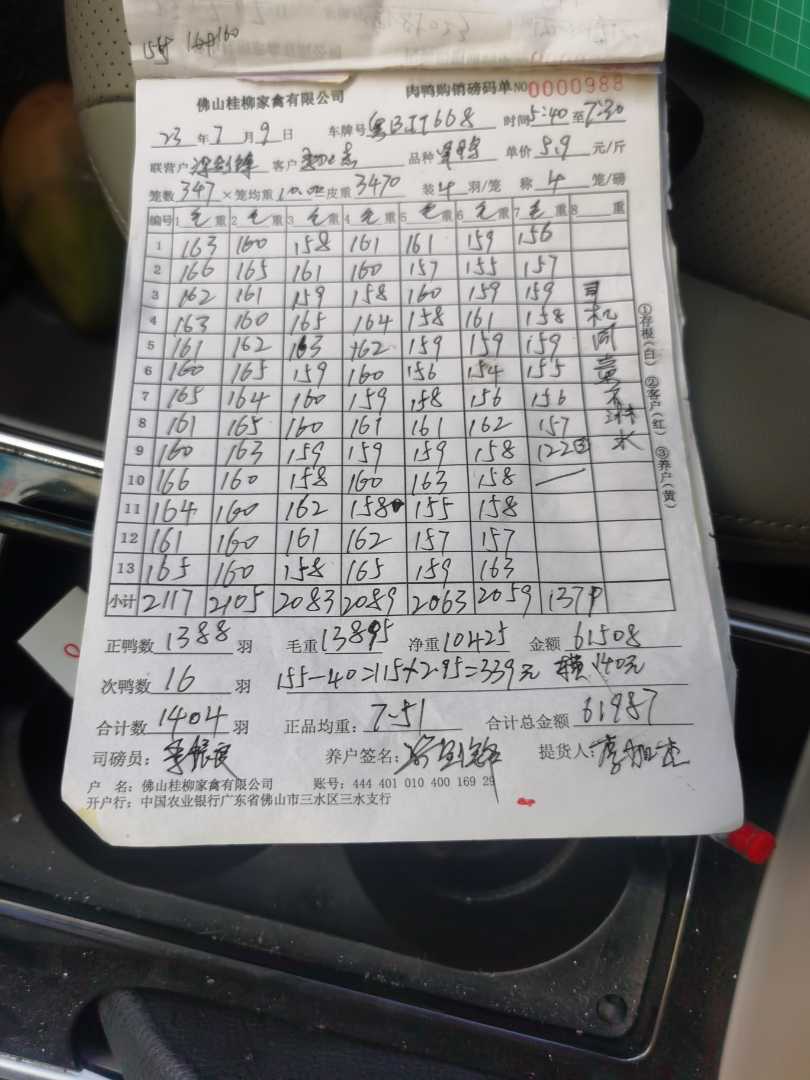 155 160 160
佛山桂柳家禽有限公司 肉鸭购销磅码单 NO 0000988
23 年 7 月 9 日 车牌号 粤BJT668 时间 5:40 至 7:30
联营户 客户 品种 单价 5.9 元/斤
笼数 347 ×笼均重 10.00 皮重 3470 装 4 羽/笼 称 4 笼/磅
编号 1 毛 重 2 毛 重 3 毛 重 4 毛 重 5 毛 重 6 毛 重 7 毛 重 8 重
1 163 160 158 161 161 159 156
2 166 165 161 160 157 155 157
3 162 161 159 158 160 159 159 司
4 163 160 165 164 158 161 158 机
5 161 162 163 162 159 159 159 同
6 160 165 159 160 156 154 155 意
7 165 164 160 159 158 156 156 不
8 161 165 160 161 161 162 157 淋
9 160 163 159 159 159 158 122③ 水
10 166 160 158 160 163 158
11 164 160 162 158 155 158
12 161 160 161 162 157 157
13 165 160 158 165 159 163
小计 2117 2105 2083 2089 2063 2059 1379
正鸭数 1388 羽 毛重 13895 净重 10425 金额 61508
次鸭数 16 羽 155-40=115×2.95=339元 140元
合计数 1404 羽 正品均重: 7.51 合计总金额 61987
司磅员: 养户签名: 提货人:
户 名: 佛山桂柳家禽有限公司 账号: 444 401 010 400 169 29
开户行: 中国农业银行广东省佛山市三水区三水支行
①存根(白) ②客户(红) ③养户(黄)